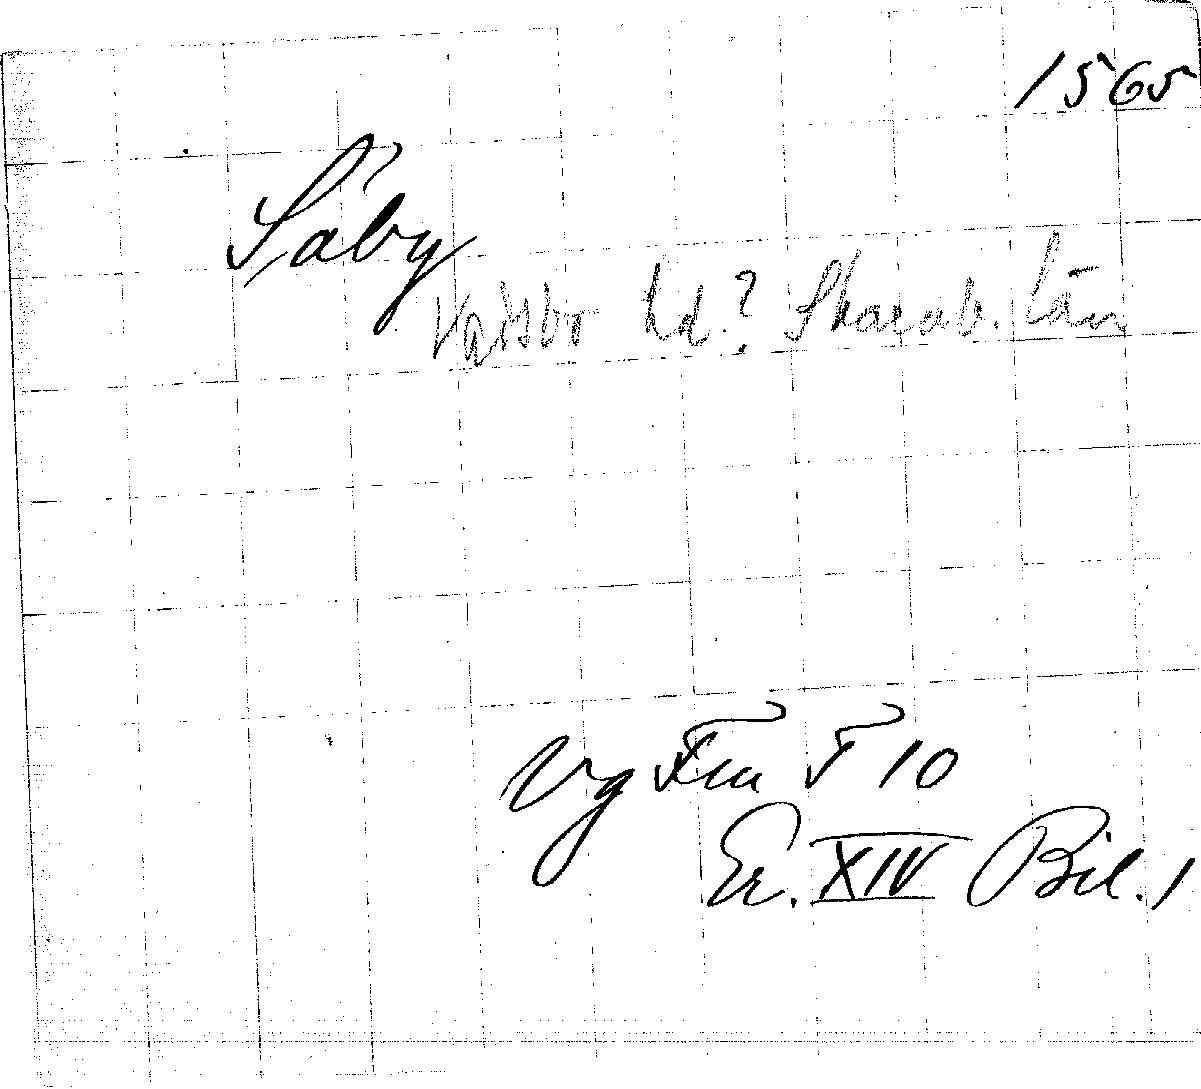 1565
Såby
Vartsbo hd? Skarab. län
Vg Fru F 10
Er. XIV Bil. 1